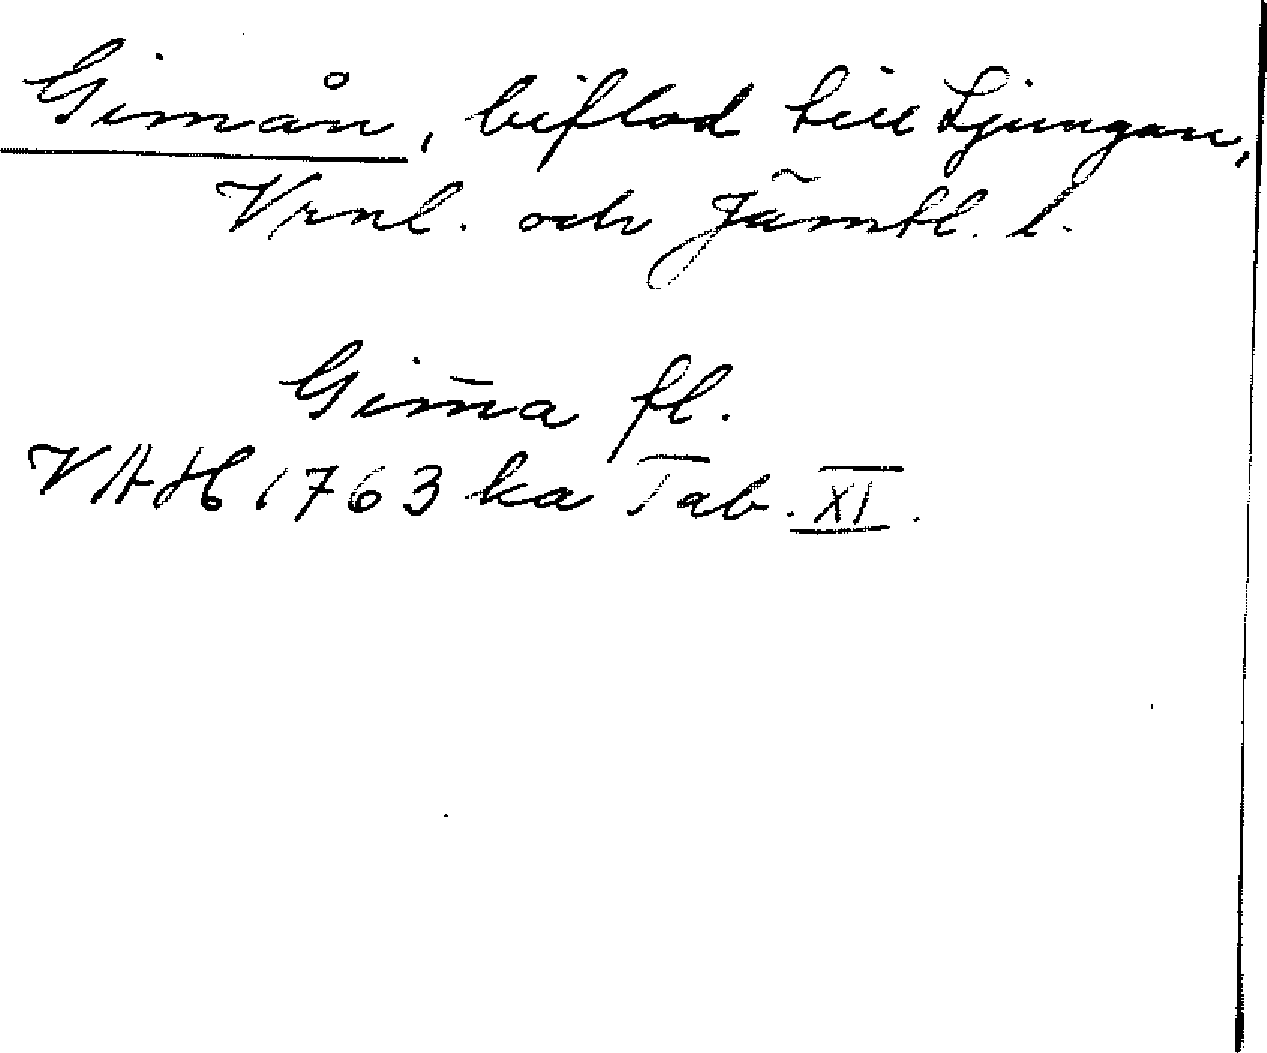 Gimån, biflod till Ljungan,
Vrnl. och Jämtl. l.
Gim̄a fl.
VAH 1763 ka Tab. XI.